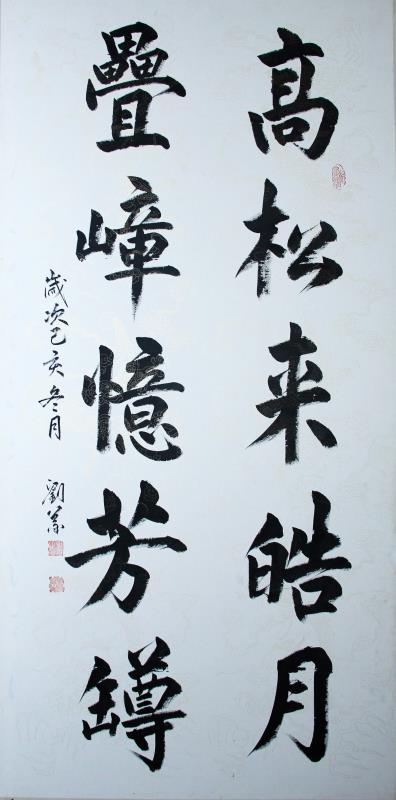 高松来皓月
疊嶂憶芳罇
歲次己亥冬月 劉